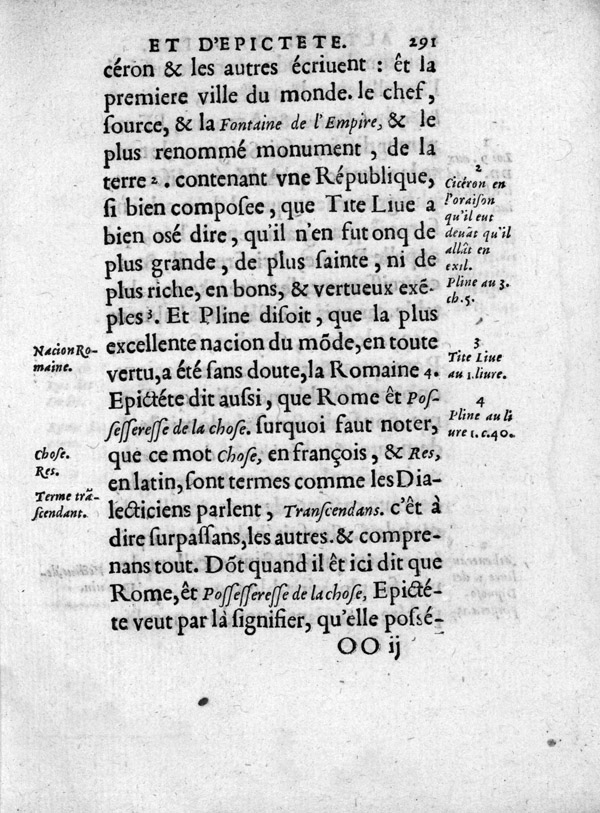 ET D'EPICTETE. 291
céron & les autres écriuent : êt la
premiere ville du monde. le chef,
ſource, & la Fontaine de l'Empire, & le
plus renommé monument, de la
terre 2. contenant vne République,
ſi bien compoſee, que Tite Liue a
bien oſé dire, qu'il n'en fut onq de
plus grande, de plus ſainte, ni de
plus riche, en bons, & vertueux exẽ-
ples 3. Et Pline diſoit, que la plus
excellente nacion du mõde, en toute
vertu, a été ſans doute, la Romaine 4.
Epictéte dit auſsi, que Rome êt Poſ-
ſeſſereſſe de la choſe. ſurquoi faut noter,
que ce mot Choſe, en françois, & Res,
en latin, ſont termes comme les Dia-
lecticiens parlent, Tranſcendans. c'êt à
dire ſurpaſſans, les autres. & compre-
nans tout. Dõt quand il êt ici dit que
Rome, êt Poſſeſſereſſe de la choſe, Epicté-
te veut par là ſignifier, qu'elle poſſé-
OO ij
Nacion Ro-
maine.
Choſe.
Res.
Terme trã-
ſcendant.
2
Cicéron en
l'oraiſon
qu'il eut
deuãt qu'il
allât en
exil.
Pline au 3.
ch. 5.
3
Tite Liue
au 1. liure.
4
Pline au li
ure 1. c. 40.